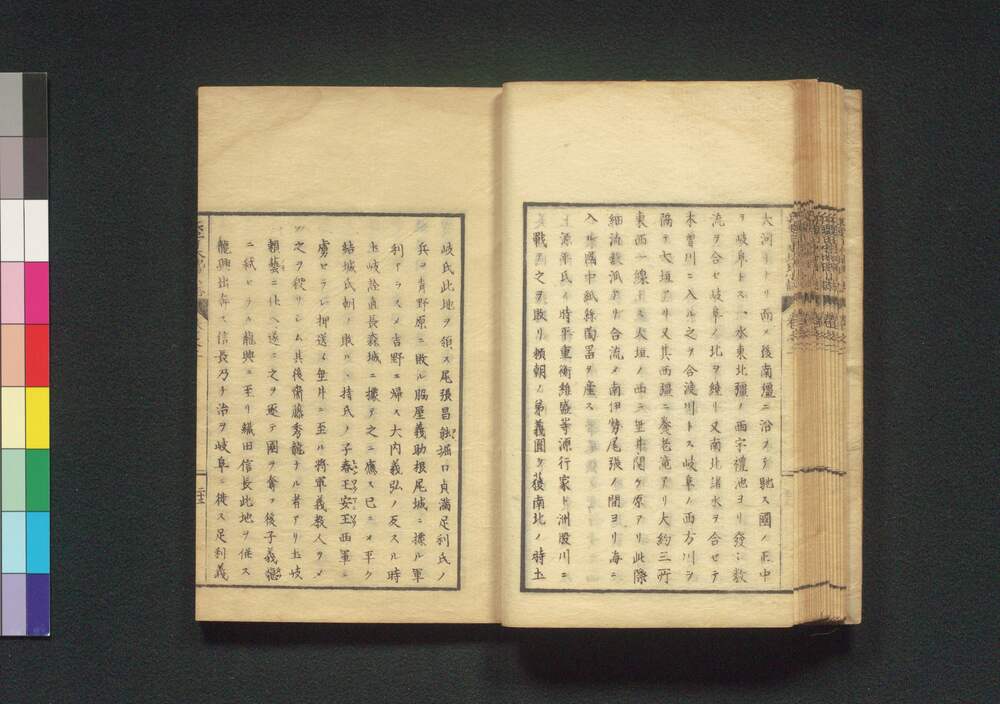 大河ナリ而メ後南疆ニ沿フテ馳ス國ノ正中
ヲ岐阜トス一水東北疆ノ西宇禮池ヨリ發シ數
流ヲ合セ岐阜ノ北ヲ繞リ又南北諸水ヲ合セテ
木曽川ニ入ル之ヲ合渡川トス岐阜ノ西方川ヲ
隔テ大垣アリ又其西疆ニ養老滝アリ大約三所
東西一線ス大垣ノ西ニ垂井関ケ原アリ此際
細流数派アリ合流メ南伊勢尾張ノ間ヨリ海ニ
入ル國中紙絲陶噐ヲ産ス
王源平氏ノ時平重衡維盛等源行家ト洲股川ニ
戰テ之ヲ敗リ頼朝ノ弟義圓ヲ後南北ノ時土
岐氏此地ヲ領ス尾張昌能堀口貞満足利氏ノ
兵ヲ青野原ニ敗ル脇屋義助根尾城ニ據ル軍
利アラスメ吉野ニ帰ス大内義弘ノ反スル時
土岐詮直長森城ニ據テ之ニ應ス已ニメ平ク
結城氏朝ノ敗ルヽ持氏ノ子春王安王西軍ニ
虜セラレ押送メ垂井ニ至ル将軍義教人ヲメ
之ヲ殺サシム其後齋藤秀龍ナル者アリ土岐
頼藝ニ仕ヘ遂ニ之ヲ逐テ國ヲ奪フ後子義龍
ニ弑セラル龍興ニ至リ織田信長此地ヲ併ス
龍興出奔ス信長乃チ治ヲ岐阜ニ徙ス足利義